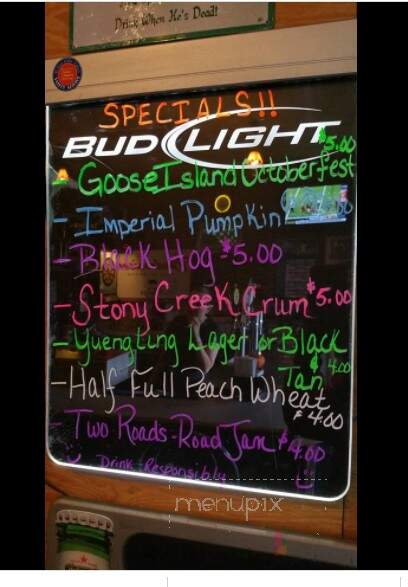 Drink When He's Dead!
SPECIALS!!
BUD LIGHT
- Goose Island Octoberfest $5.00
- Imperial Pumpkin
- Black Hog $5.00
- Stony Creek Crum $5.00
- Yuengling Lager or Black
Tan $4.00
- Half Full Peach Wheat
$4.00
- Two Roads-Road Jam $4.00
Drink Responsibly
menupix